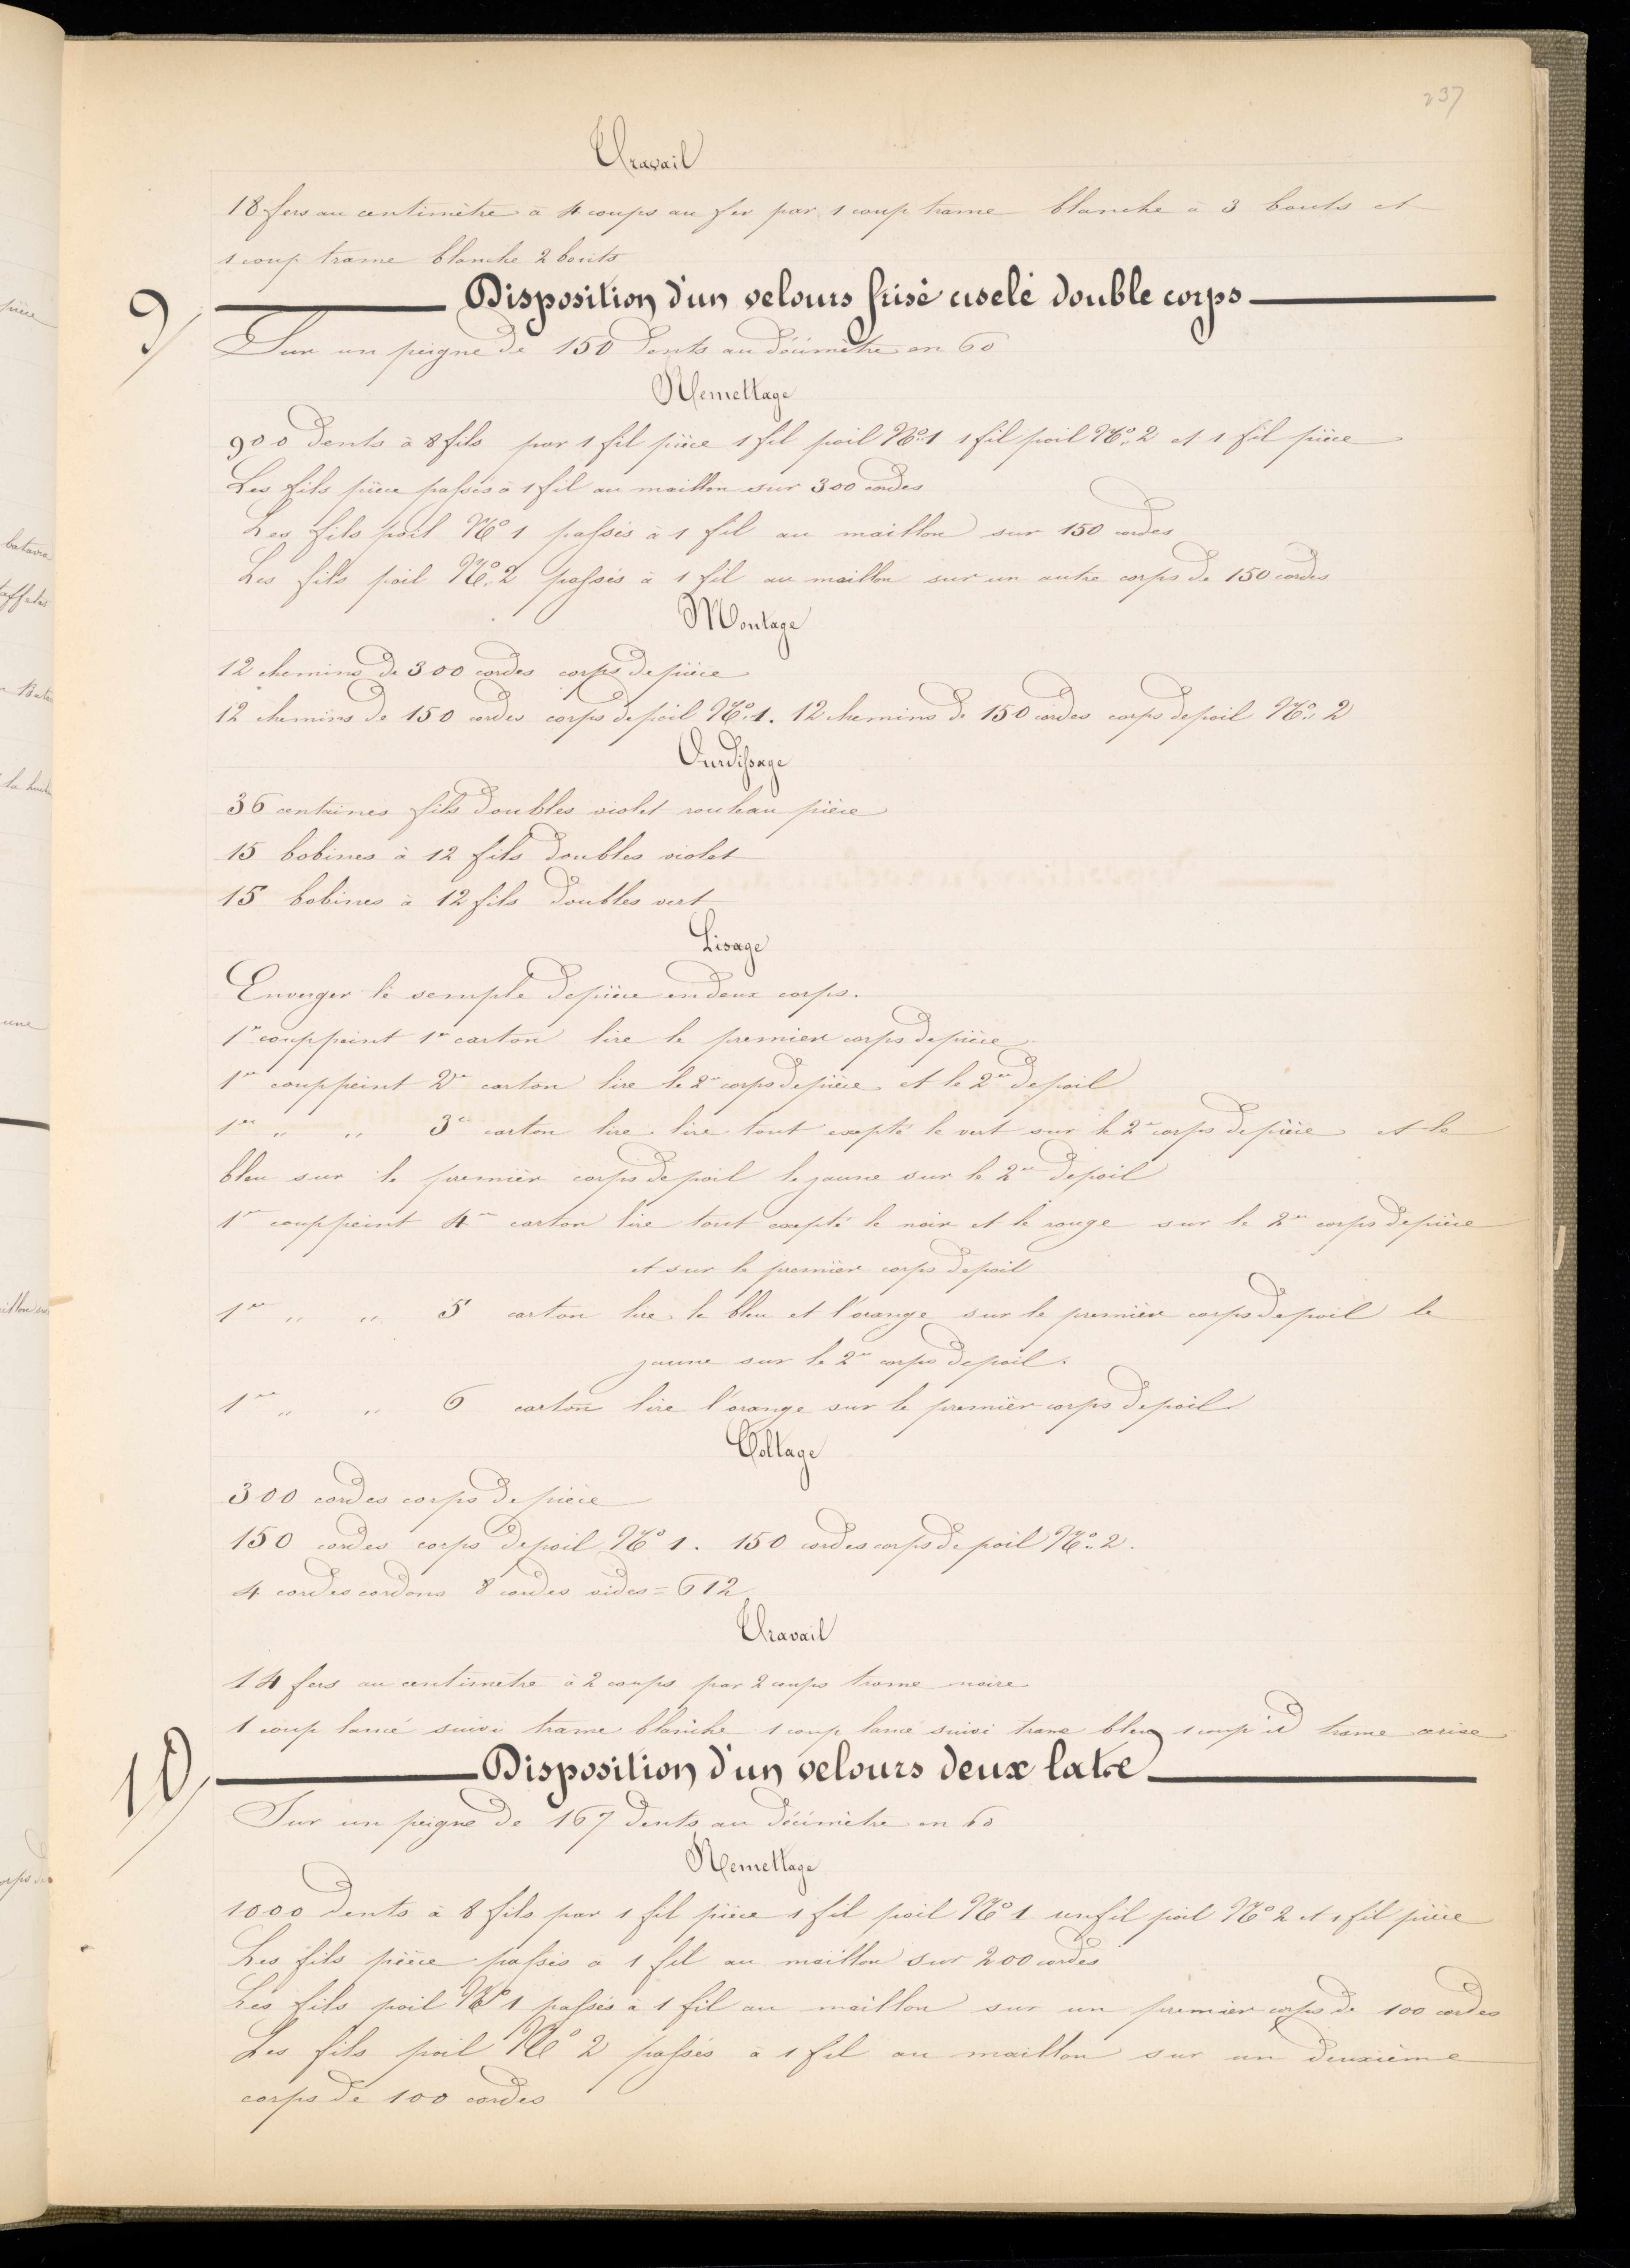 237
Travail
18 fers au centimètre à 4 coups au fer par 1 coup trame blanche à 3 bouts et
1 coup trame blanche 2 bouts
9/ Disposition d'un velours frisé ciselé double corps
Sur un peigne de 150 dents au décimètre en 60
Remettage
900 dents à 8 fils par 1 fil pièce 1 fil poil No 1 1 fil poil No 2 et 1 fil pièce
Les fils pièce passés à 1 fil au maillon sur 300 cordes
Les fils poil No 1 passés à 1 fil au maillon sur 150 cordes
Les fils poil No 2 passés à 1 fil au maillon sur un autre corps de 150 cordes
Montage
12 chemins de 300 cordes corps de pièce
12 chemins de 150 cordes corps de poil No 1. 12 chemins de 150 cordes corps de poil No 2
Ourdissage
36 centaines fils doubles violet rouleau pièce
15 bobines à 12 fils doubles violet
15 bobines à 12 fils doubles vert
Lisage
Enverger le semple de pièce en deux corps.
1er coup peint 1er carton lire le premier corps de pièce
1er coup peint 2e carton lire le 2e corps de pièce et le 2e de poil
1er " " 3e carton lire lire tout excepté le vert sur le 2e corps de pièce et le
bleu sur le premier corps de poil le jaune sur le 2e de poil
1er coup peint 4e carton lire tout excepté le noir et le rouge sur le 2e corps de pièce
et sur le premier corps de poil
1er " " 5 carton lire le bleu et l'orange sur le premier corps de poil le
jaune sur le 2e corps de poil.
1er " " 6 carton lire l'orange sur le premier corps de poil
Colltage
300 cordes corps de pièce
150 cordes corps de poil No 1. 150 cordes corps de poil No 2.
4 cordes cordons 8 cordes vides = 612
Travail
14 fers au centimètre à 2 coups par 2 coups trame noire
1 coup lancé suivi trame blanche 1 coup lancé suivi trame bleu 1 coup id trame cerise
10/ Disposition d'un velours deux lats
Sur un peigne de 167 dents au décimètre en 60
Remettage
1000 dents à 8 fils par 1 fil pièce 1 fil poil No 1 un fil poil No 2 et 1 fil pièce
Les fils pièce passés à 1 fil au maillon sur 200 cordes
Les fils poil No 1 passés à 1 fil au maillon sur un premier corps de 100 cordes
Les fils poil No 2 passés à 1 fil au maillon sur un deuxième
corps de 100 cordes